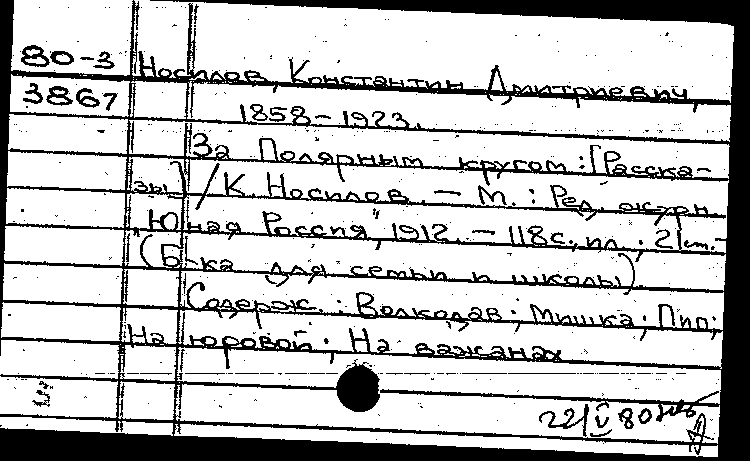 80-3 Носилов, Константин Дмитриевич,
3867 1858-1923.
За Полярным кругом: [Расска-
зы] / К. Носилов. — М.: Ред. журн.
„Юная Россия", 1912. — 118с., ил.; 21см. —
(Б-ка для семьи и школы)
Содерж.: Волкодав; Мишка; Пип;
На юровой; На важанах
22/V 80